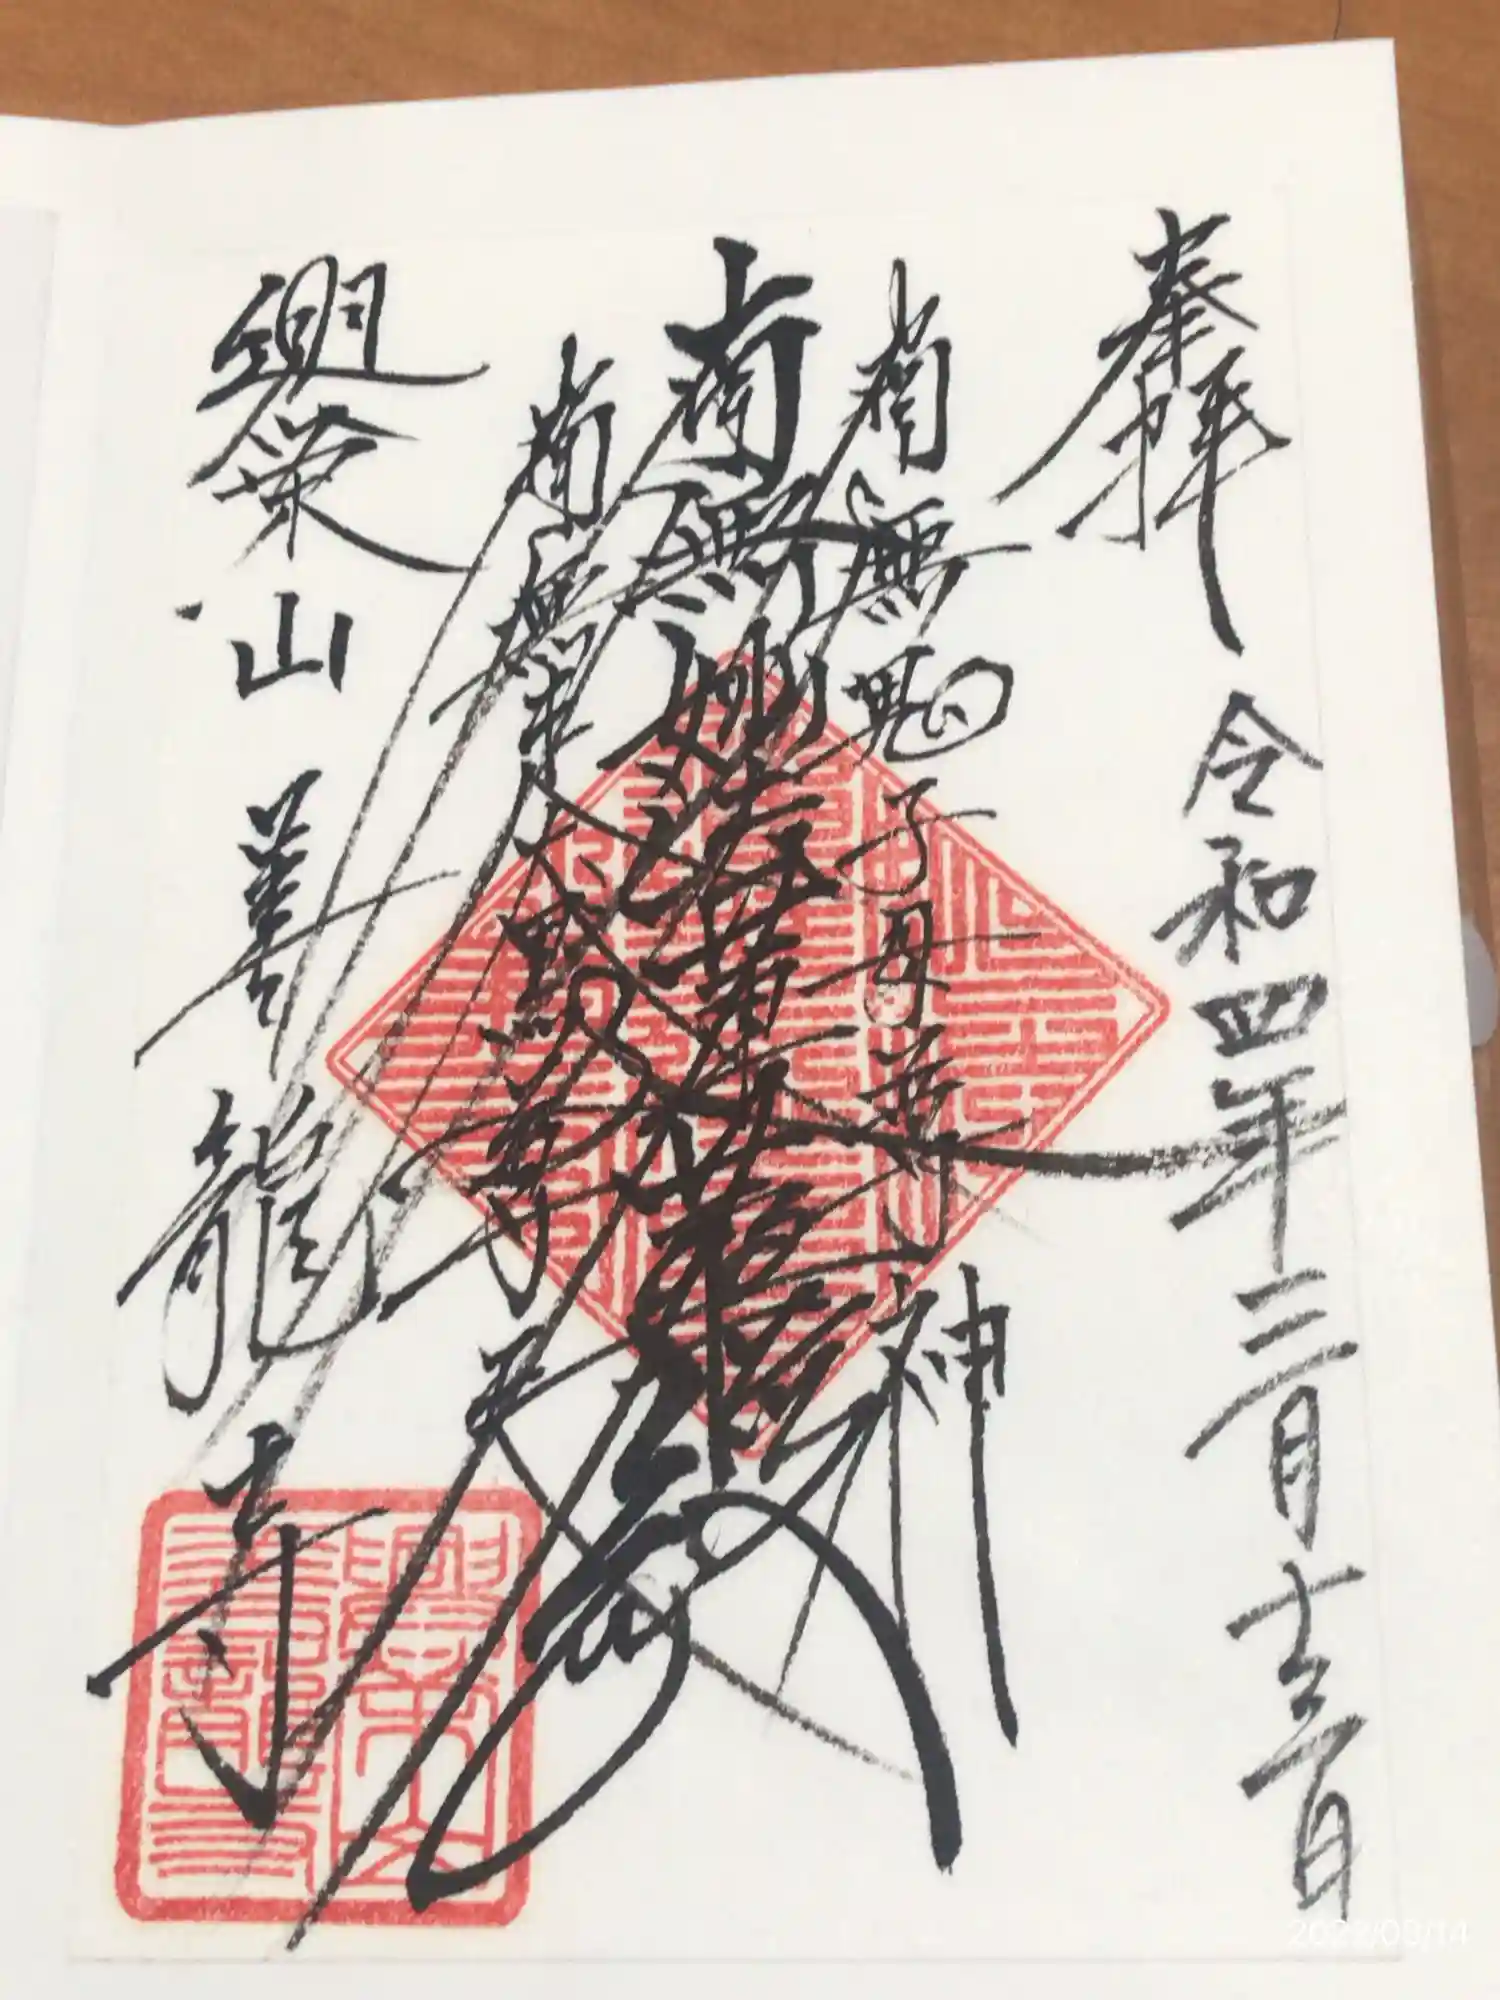 奉拝 令和四年三月十三日
南無鬼子母尊神
南無妙法蓮華経
南無大黒尊天
栄山 善龍寺
2022/03/14